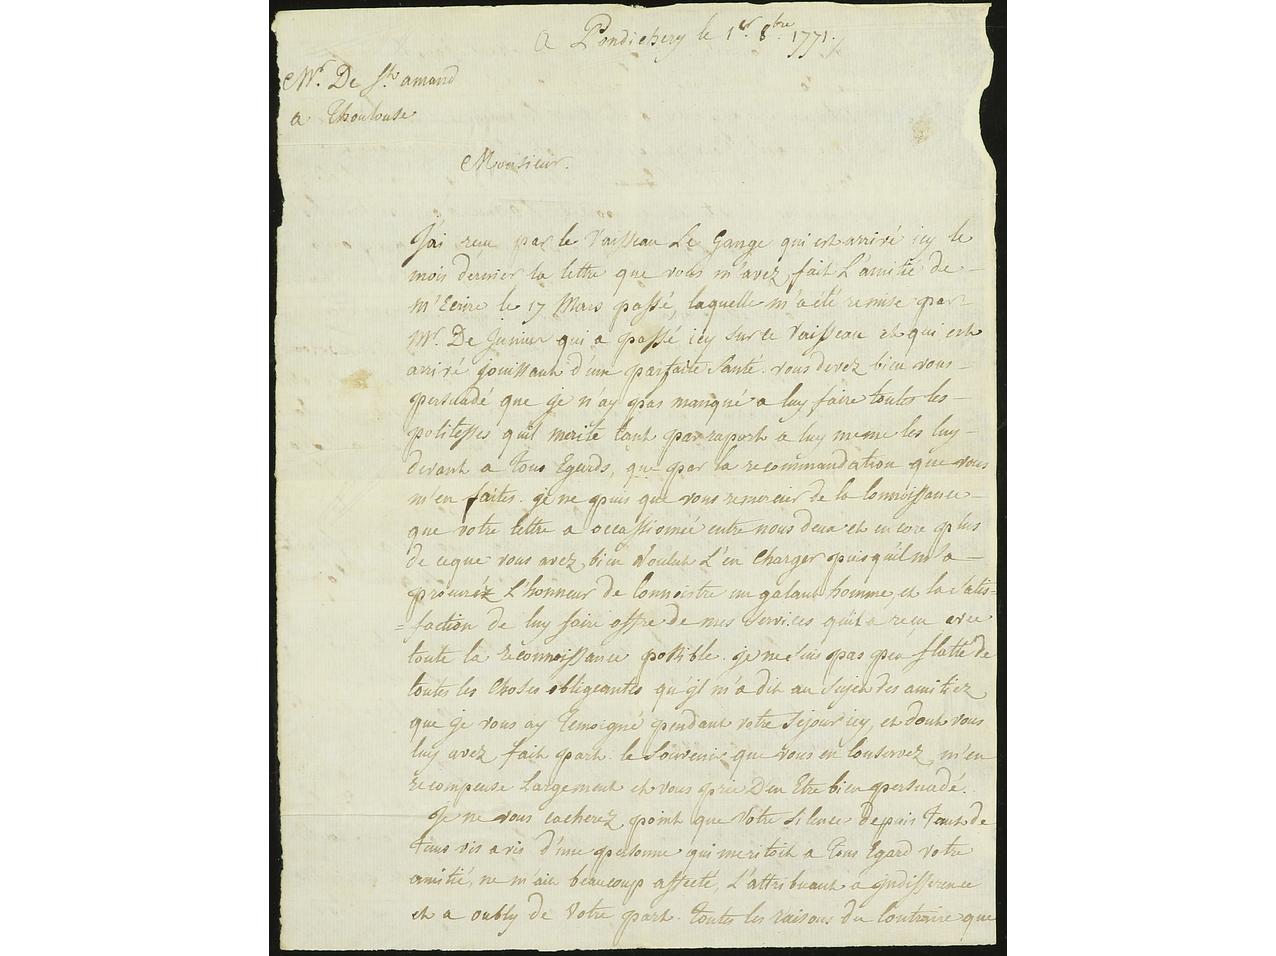 A Pondichery le 1er. 8bre. 1771.
Mr. De St. amand
a Thoulouse
Monsieur.
J'ai recu par le Vaisseau Le Gange qui est arrivé icy le
mois dernier la lettre que vous m'avez fait L'amitié de
m'Ecrire le 17 Mars passé, laquelle m'a été remise par
Mr. De Junier qui a passé icy sur ce Vaisseau et qui est
arrivé jouissant d'une parfaite Santé. vous devez bien vous
persuadé que je n'ay pas manqué a luy faire toutes les
politesses quil merite tant par raport a luy meme les luy
devant a tous Egards, que par la recommandation que vous
m'en faites. je ne puis que vous remercier de la Connoissance
que votre lettre a occassionneé entre nous deux et encore plus
de ceque vous avez bien Voulut L'en Charger puisqu'il m'a
procuréz L'honneur de Connoistre un galant homme, et la satis-
=faction de luy faire offre de mes services qu'il a recu avec
toute la reconnoissance possible. je ne suis pas peu flatté de
toutes les Choses obligeantes qu'jl m'a dit au sujet des amitiez
que je vous ay Temoigné pendant votre Sejour icy, et dont vous
luy avez fait part. le Souvenir que vous en Conservez m'en
recompense Largement et vous prie D'en Etre bien persuadé.
Je ne vous cacherez point que Votre silence depuis tant de
tems vis avis d'une personne qui meritoit a Tous Egard Votre
amitié, ne m'ait beaucoup affecté, L'attribuant a jndifference
et a oubly de Votre part. toutes les raisons du Contraire que